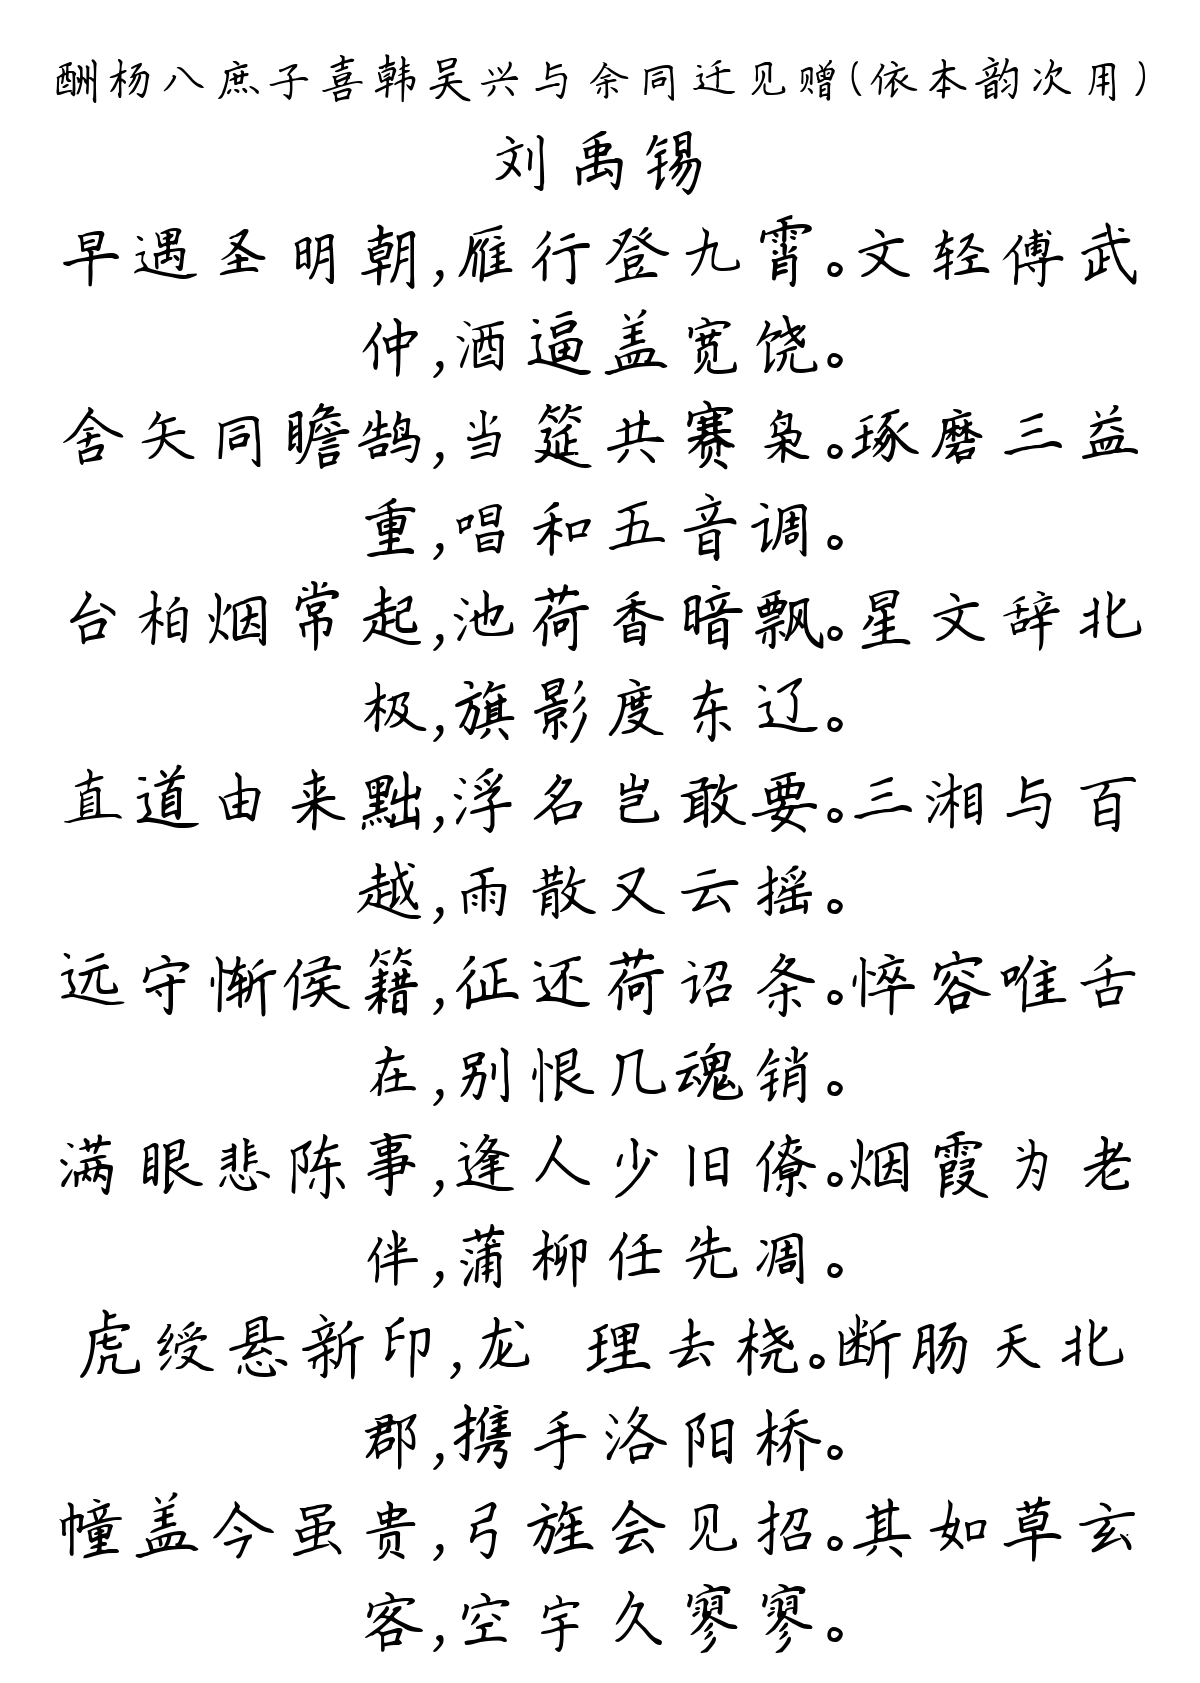 酬杨八庶子喜韩吴兴与余同迁见赠（依本韵次用）
刘禹锡
早遇圣明朝,雁行登九霄。文轻傅武
仲,酒逼盖宽饶。
舍矢同瞻鹄,当筵共赛枭。琢磨三益
重,唱和五音调。
台柏烟常起,池荷香暗飘。星文辞北
极,旗影度东辽。
直道由来黜,浮名岂敢要。三湘与百
越,雨散又云摇。
远守惭侯籍,征还荷诏条。悴容唯舌
在,别恨几魂销。
满眼悲陈事,逢人少旧僚。烟霞为老
伴,蒲柳任先凋。
虎绶悬新印,龙 理去桡。断肠天北
郡,携手洛阳桥。
幢盖今虽贵,弓旌会见招。其如草玄
客,空宇久寥寥。